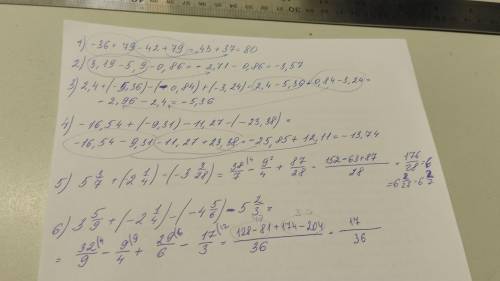 1) -36 + 79 - 42 + 79 = 43 + 37 = 80
2) 3,19 - 5,9 - 0,86 = - 2,71 - 0,86 = -3,57
3) 2,4 + (-5,36) - (-0,84) + (-3,24) - 2,4 - 5,36 + 0,84 - 3,24 =
- 2,96 - 2,4 = -5,36
4) - 16,54 + (-9,31) - 11,27 - (-23,38) =
-16,54 - 9,31 - 11,27 + 23,38 = -25,85 + 12,11 = -13,74
5) 5 3/7 + (2 1/4) - (-3 3/28) = 38/7 - 9/4 + 87/28 = (152-63+87)/28 = 176/28 = 6
= 6 8/28 = 6 2/7
6) 3 5/9 + (-2 1/4) - (-4 5/6) - 5 2/3 =
= 32/9 - 9/4 + 29/6 - 17/3 = (128-81+174-204)/36 = 17/36